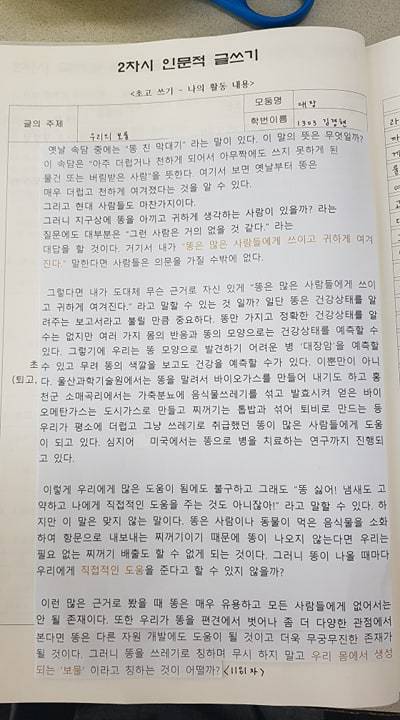 2차시 인문적 글쓰기
<초고 쓰기 - 나의 활동 내용>
글의 주제
우리의 보물
모둠명
대장
학번이름
1303
옛날 속담 중에는 "똥 친 막대기" 라는 말이 있다. 이 말의 뜻은 무엇일까?
이 속담은 "아주 더럽거나 천하게 되어서 아무짝에도 쓰지 못하게 된
물건 또는 버림받은 사람"을 뜻한다. 여기서 보면 옛날부터 똥은
매우 더럽고 천하게 여겨졌다는 것을 알 수 있다.
그리고 현대 사람들도 마찬가지이다.
그러니 지구상에 똥을 아끼고 귀하게 생각하는 사람이 있을까? 라는
질문에도 대부분은 "그런 사람은 거의 없을 것 같다." 라는
대답을 할 것이다. 거기서 내가 "똥은 많은 사람들에게 쓰이고 귀하게 여겨
진다." 말한다면 사람들은 의문을 가질 수밖에 없다.
그렇다면 내가 도대체 무슨 근거로 자신 있게 "똥은 많은 사람들에게 쓰이
고 귀하게 여겨진다." 라고 말할 수 있는 것 일까? 일단 똥은 건강상태를 알
려주는 보고서라고 불릴 만큼 중요하다. 똥만 가지고 정확한 건강상태를 알
수는 없지만 여러 가지 몸의 반응과 똥의 모양으로는 건강상태를 예측할 수
있다. 그렇기에 우리는 똥 모양으로 발견하기 어려운 병 '대장암'을 예측할
수 있고 무려 똥의 색깔을 보고도 건강을 예측할 수가 있다. 이뿐만이 아니
다. 울산과학기술원에서는 똥을 말려서 바이오가스를 만들어 내기도 하고 홍
천군 소매곡리에서는 가축분뇨에 음식물쓰레기를 섞고 발효시켜 얻은 바이
오메탄가스는 도시가스로 만들고 찌꺼기는 톱밥과 섞어 퇴비로 만드는 등
우리가 평소에 더럽고 그냥 쓰레기로 취급했던 똥이 많은 사람들에게 도움
이 되고 있다. 심지어 미국에서는 똥으로 병을 치료하는 연구까지 진행되
고 있다.
초
(퇴고,
이렇게 우리에게 많은 도움이 됨에도 불구하고 그래도 "똥 싫어! 냄새도 고
약하고 나에게 직접적인 도움을 주는 것도 아니잖아!" 라고 말할 수 있다. 하
지만 이 말은 맞지 않는 말이다. 똥은 사람이나 동물이 먹은 음식물을 소화
하여 항문으로 내보내는 찌꺼기이기 때문에 똥이 나오지 않는다면 우리는
필요 없는 찌꺼기 배출도 할 수 없게 되는 것이다. 그러니 똥이 나올 때마다
우리에게 직접적인 도움을 준다고 할 수 있지 않을까?
이런 많은 근거로 봤을 때 똥은 매우 유용하고 모든 사람들에게 없어서는
안 될 존재이다. 또한 우리가 똥을 편견에서 벗어나 좀 더 다양한 관점에서
본다면 똥은 다른 자원 개발에도 도움이 될 것이고 더욱 무궁무진한 존재가
될 것이다. 그러니 똥을 쓰레기로 칭하며 무시 하지 말고 우리 몸에서 생성
되는 '보물' 이라고 칭하는 것이 어떨까? <1181자>